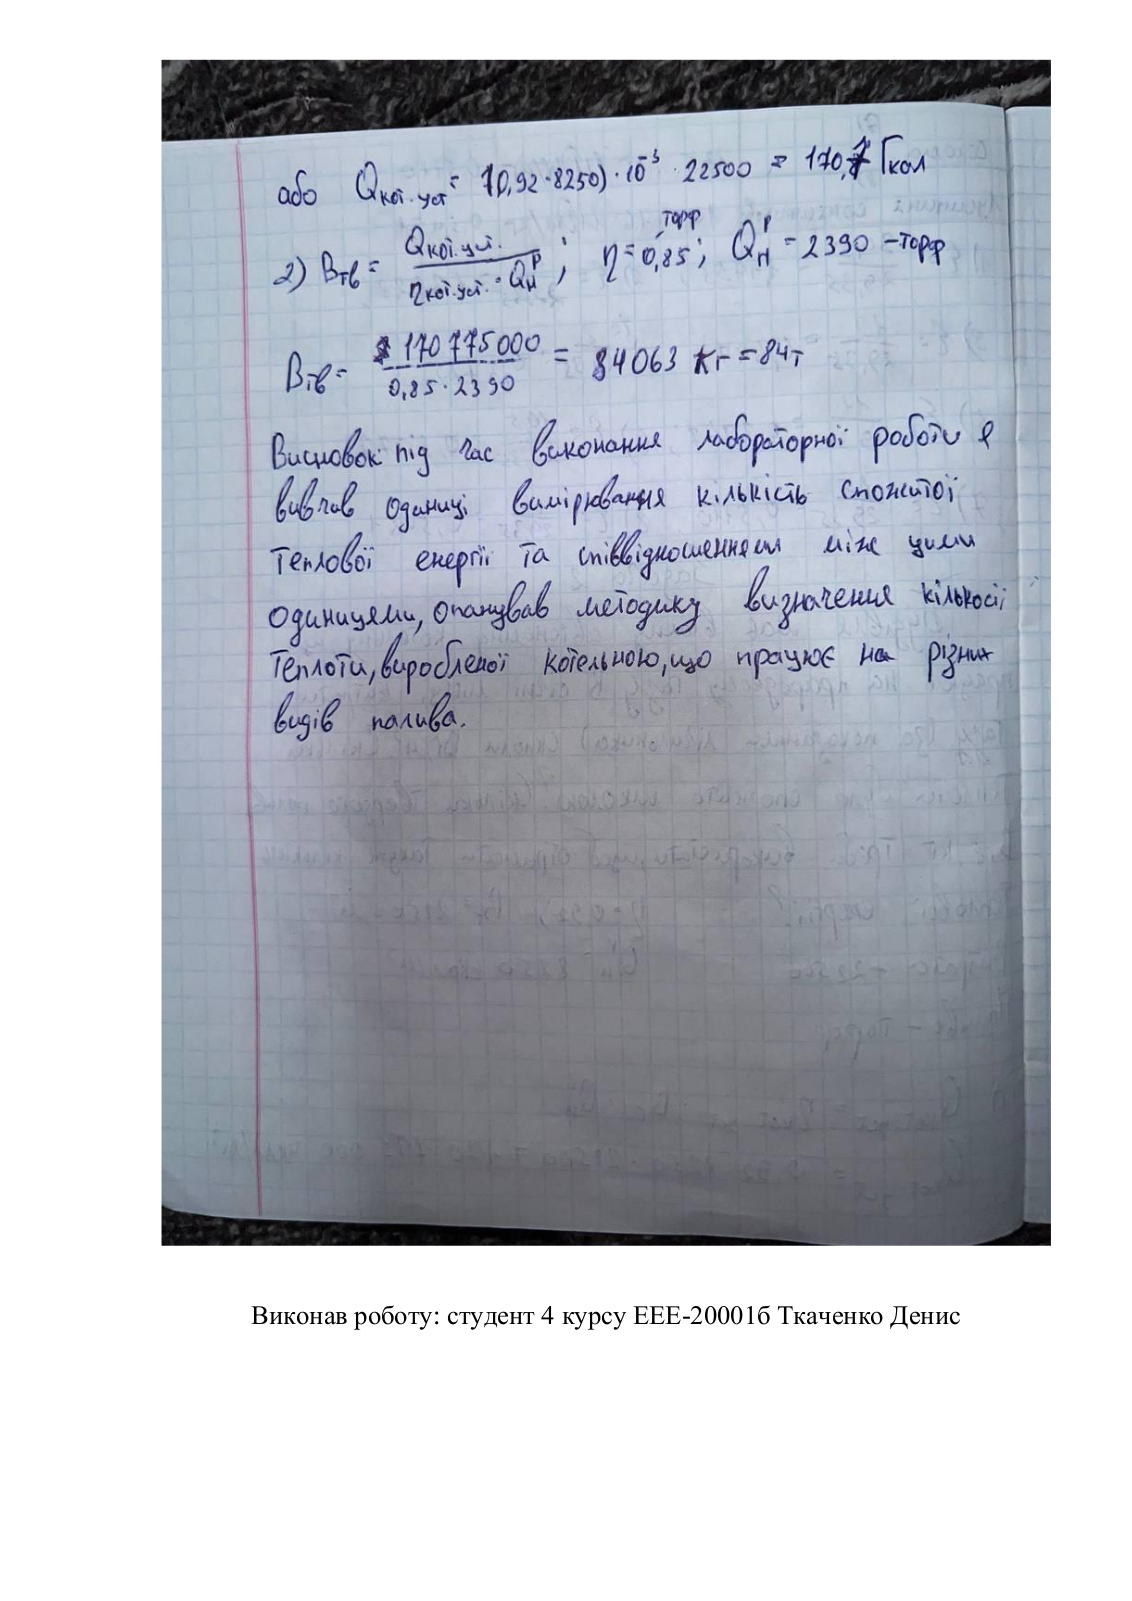 або Qкот.уст = (0,92·8250)·10⁻³ · 22500 = 170,7 Гкал
2) Bтв = Qкот.уст. / ηкот.уст. · Qнᴾ ; η торф = 0,85; Qнᴾ = 2390 – торф
Bтв = 170 775 000 / 0,85·2390 = 84063 кг = 84т
Висновок: під час виконання лабораторної роботи я
вивчив одиниці вимірювання кількість спожитої
теплової енергії та співвідношенням між цими
одиницями, опанував методику визначення кількості
теплоти, виробленої котельною, що працює на різних
видів палива.
Виконав роботу: студент 4 курсу ЕЕЕ-20001б Ткаченко Денис